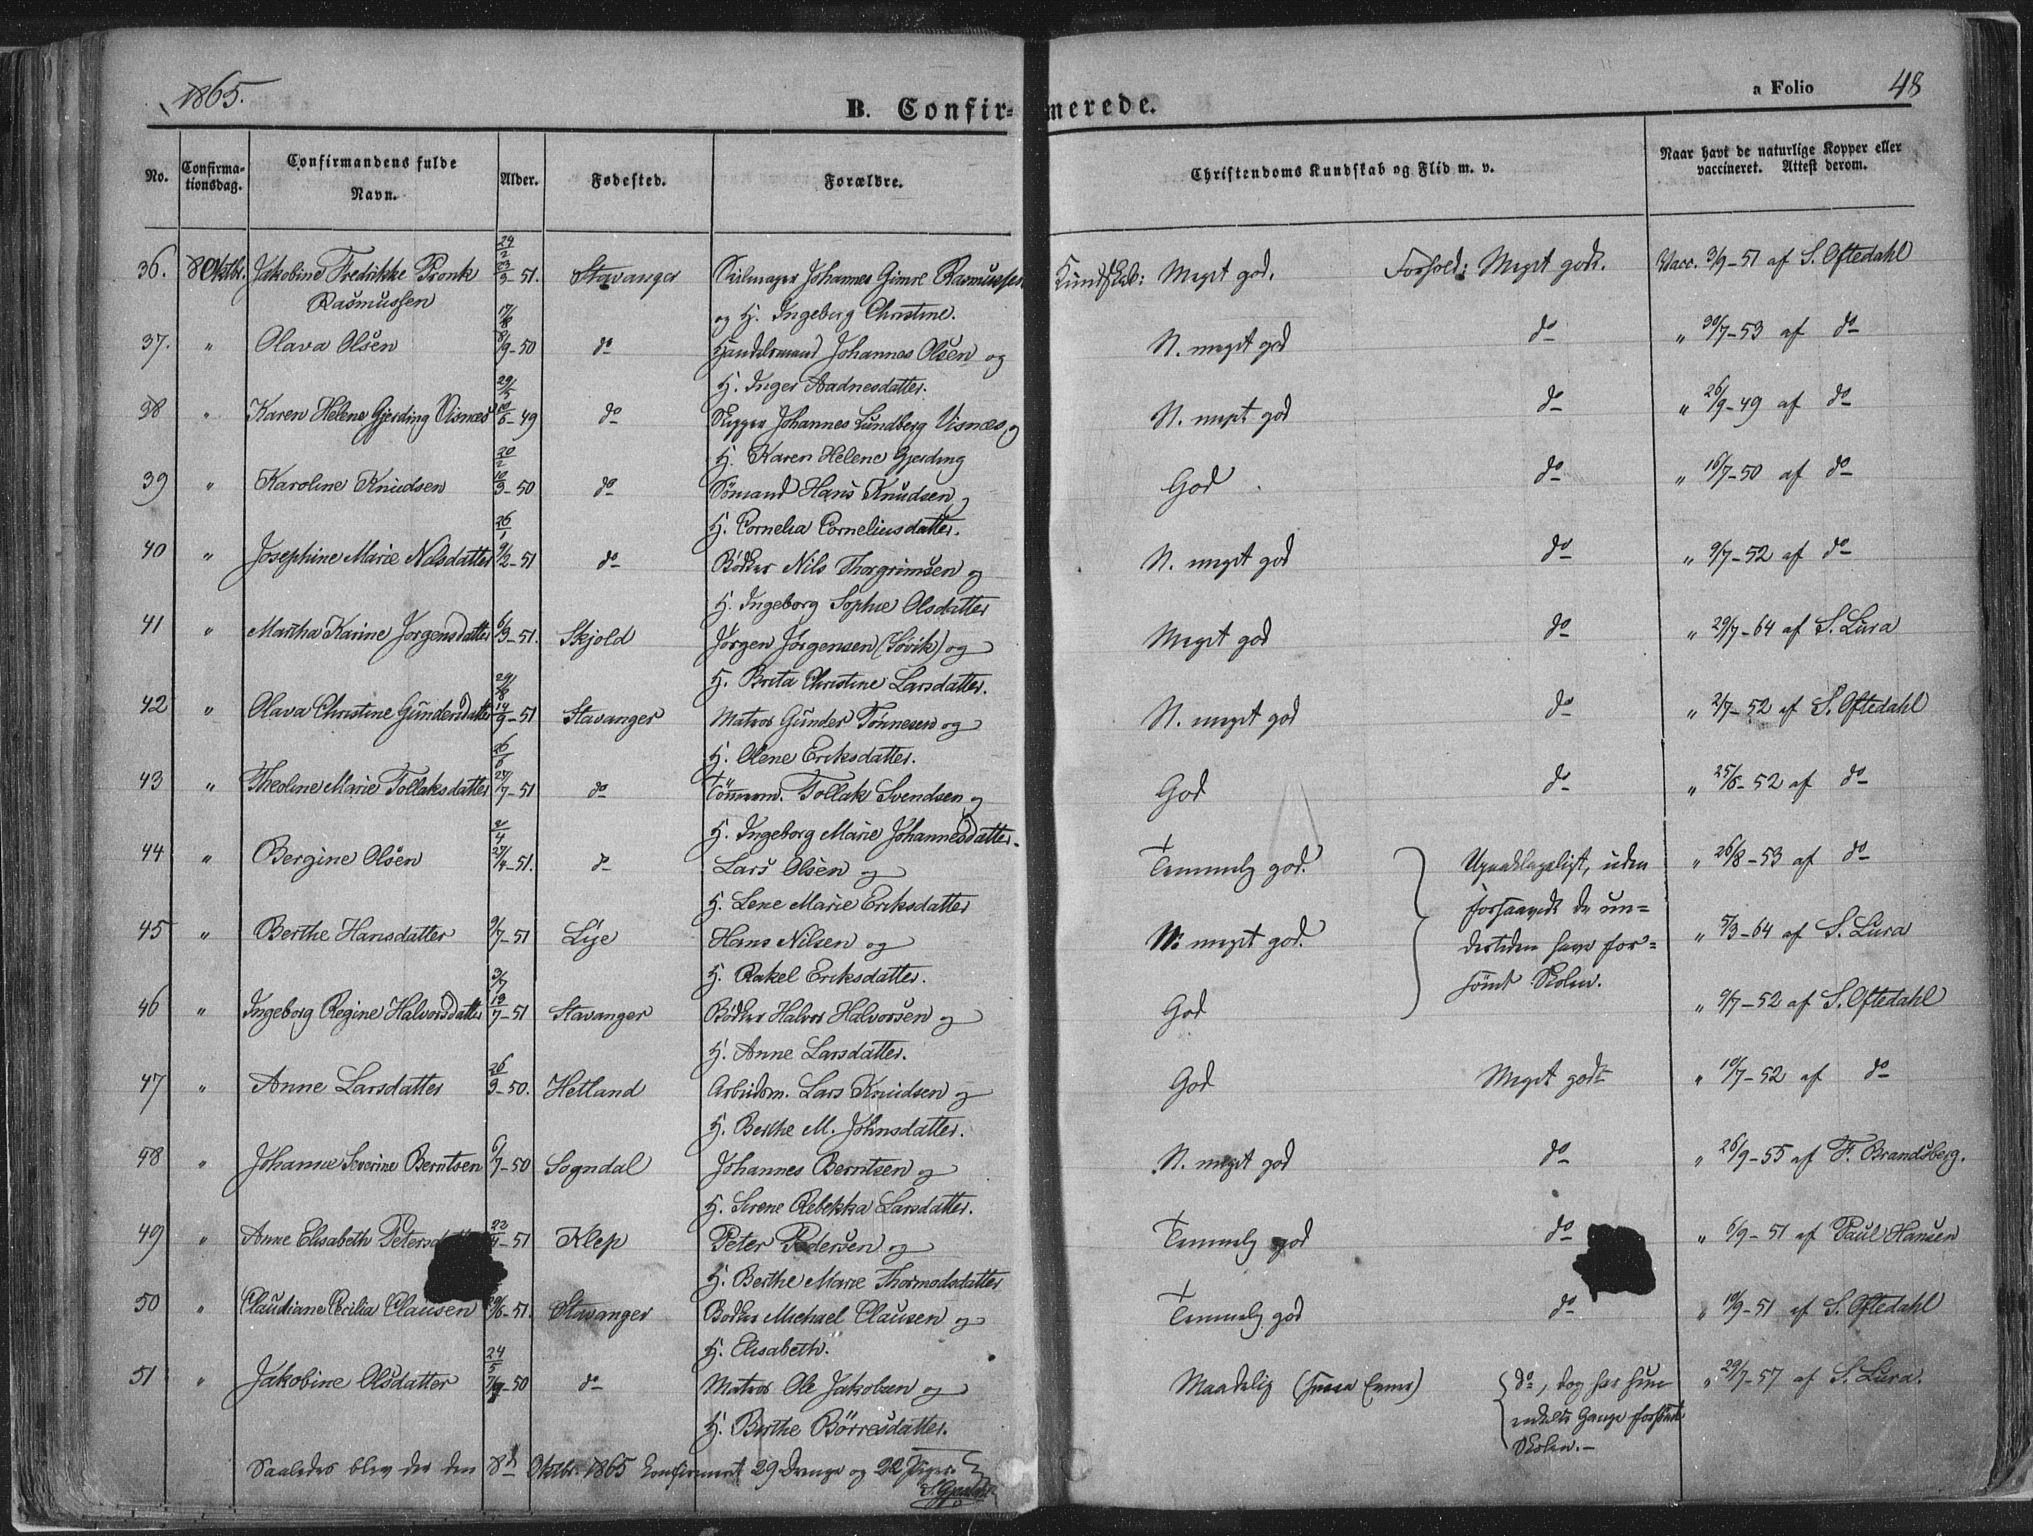 1865.
B. Confirmerede.
a Folio 48
No. Confirmationsdag. Confirmandens fulde Navn. Alder. Fødested. Forældre. Christendoms Kundskab og Flid m. v. Naar havt de naturlige Kopper eller vaccineret. Attest derom.
36. 8 Oktbr. Jakobine Fredrikke Pronk 24/2 23/3-51. Stavanger Seilmager Johannes Gimre Rasmussen Kundskab: Meget god. Forhold: Meget godt. Vacc. 3/9-51 af S. Oftedahl
Rasmussen og H. Ingeborg Christine.
37. " Olava Olsen 17/8 8/9-50 do Handelsmand Johannes Olsen og N. meget god do " 30/7-53 af do
H. Inger Aadnesdatter.
38 " Karen Helene Gjerding Visnæs 29/5 10/6-49 do Skipper Johannes Lundberg Visnæs og N. meget god do " 26/9-49 af do
H. Karen Helene Gjerding
39 " Karoline Knudsen 20/2 10/3-50 do Sömand Hans Knudsen og God do " 16/7-50 af do
H. Cornelia Corneliusdatter.
40 " Josephine Marie Nilsdatter 26/1 9/2-51 do Bödker Nils Thorgrimsen og N. meget god do " 9/7-52 af do
H. Ingeborg Sophie Olsdatter
41 " Martha Karine Jorgensdatter 6/3-51. Skjold Jörgen Jörgensen (Søvik) og Meget god do " 29/7-64 af S. Lura
H. Brita Christine Larsdatter.
42 " Olava Christine Gundersdatter 29/8 14/9-51 Stavanger Matros Gunder Tönnesen og N. meget god do " 2/7-52 af S. Oftedahl
H. Olene Eriksdatter.
43 " Theoline Marie Tollaksdatter 26/6 27/7-51 do Tömmerm. Tollak Svendsen og God do " 25/6-52 af do
H. Ingeborg Marie Johannesdatter.
44 " Bergine Olsen 2/4 27/4-51. do Lars Olsen og Temmelig god. Upaaklageligt, uden " 26/8-53 af do
H. Lene Marie Eriksdatter forsaavidt de un=
45 " Berthe Hansdatter 9/7-51 Lye Hans Nilsen og N. meget god. dertiden have for= " 5/3-64 af S. Lura
H. Rakel Eriksdatter. sömt Skolen.
46 " Ingeborg Regine Halvorsdatter 3/7 19/7-51 Stavanger Bödker Halvor Halvorsen og God " 9/7-52 af S. Oftedahl
H. Anne Larsdatter.
47 " Anne Larsdatter 26/3-50. Hetland Arbeidsm. Lars Knudsen og God Meget godt " 10/7-52 af do
H. Berthe M. Johnsdatter.
48 " Johanne Severine Berntsen 6/7-50 Sogndal Johannes Berntsen og N. meget god do " 26/9-55 af F. Brandsberg.
H. Serene Rebekka Larsdatter.
49 " Anne Elisabeth 22/4-51 Klep Peter Pedersen og Temmelig god do " 6/9-51 af Paul Hansen
H. Berthe Marie Thormodsdatter
50 " Claudiane Cecilia Clausen 29/6-51. Stavanger Bødker Michael Clausen og Temmelig god do " 19/9-51 af S. Oftedahl
H. Elisabeth.
51 " Jakobine Olsdatter 24/5 -50 do Matros Ole Jakobsen og Maadelig (svage Evner) do, dog har hun " 29/7-57 af S. Lura.
H. Berthe Börresdatter. enkelte Gange forsömt
Skolen.-
Saaledes blev der den 8d Oktbr. 1865 konfirmeret 29 Drenge og 22 Piger.